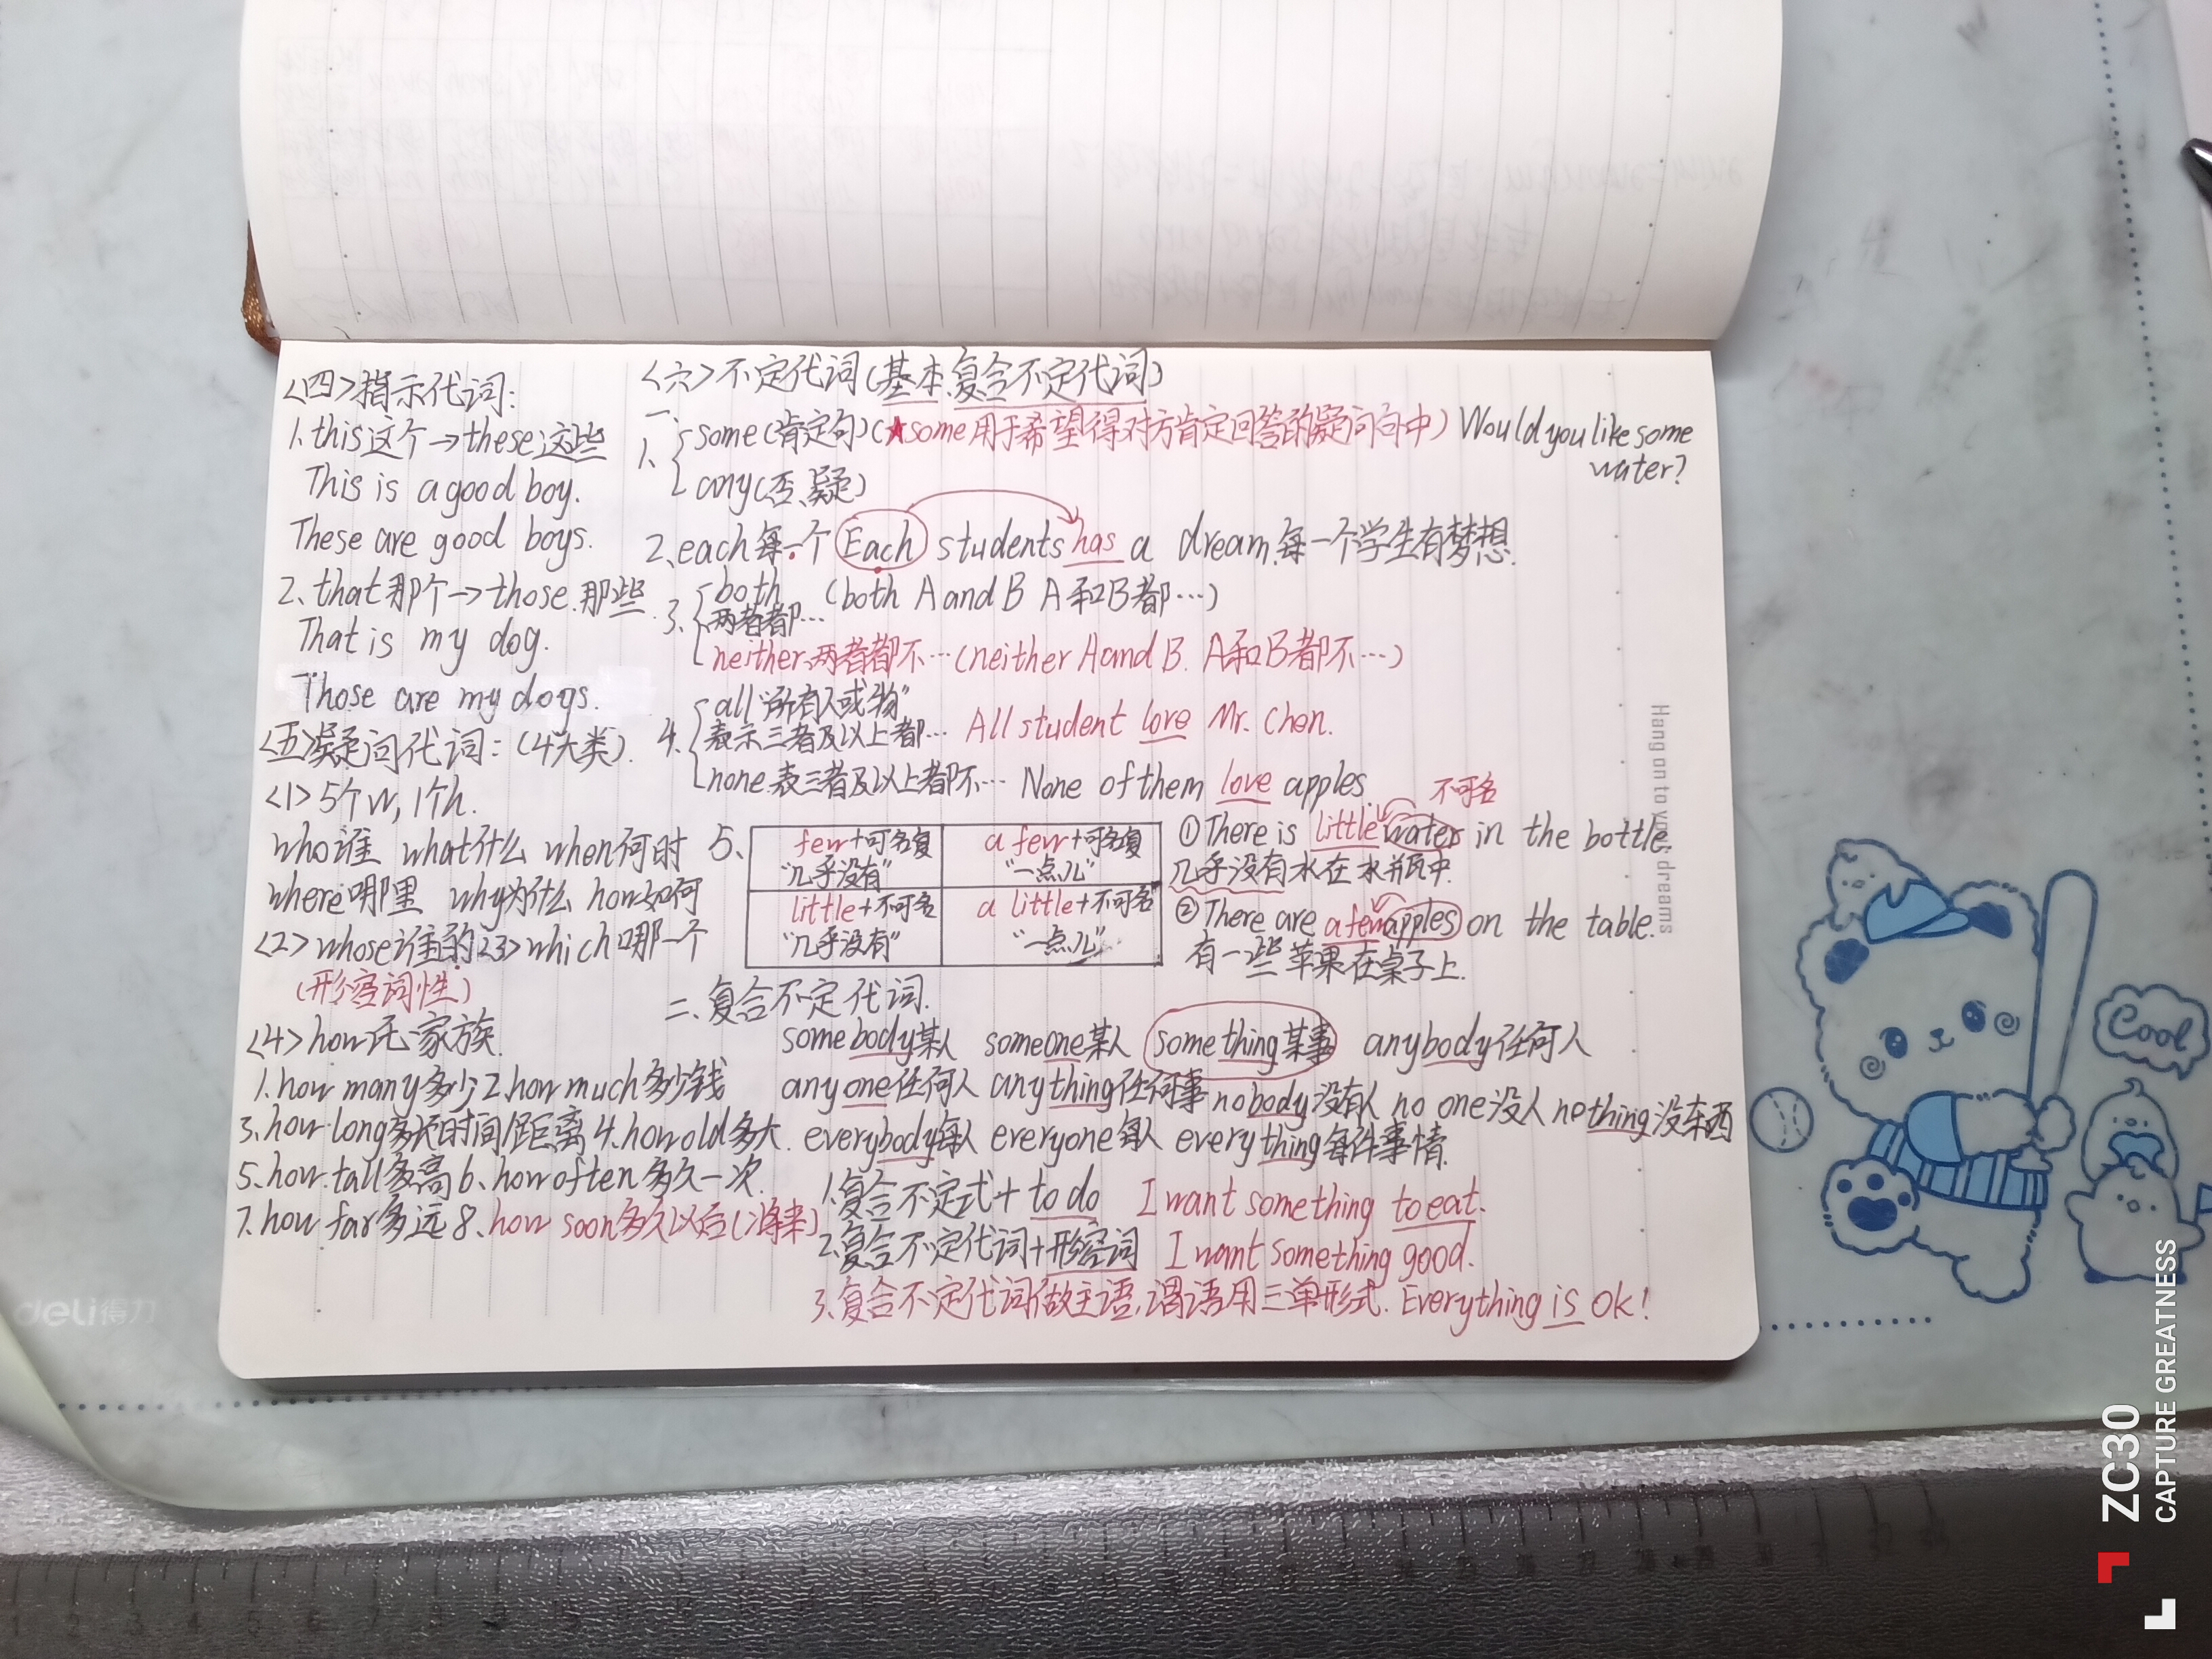 <四>指示代词:
1. this这个→these这些
This is a good boy.
These are good boys.
2. that那个→those.那些
That is my dog.
Those are my dogs.
<五>疑问代词:(4大类).
<1>5个w,1个h.
who谁 what什么 when何时
where哪里 why为什么 how如何
<2>whose谁的<3>which哪一个
(形容词性)
<4>how氏家族.
1.how many多少2.how much多少钱
3.how long多长时间/距离4.how old多大.
5.how tall多高6、how often多久一次.
7.how far多远8、how soon多久以后(将来)
<六>不定代词(基本.复合不定代词)
一、
1、some(肯定句)(★some用于希望得对方肯定回答的疑问句中) Would you like some
water?
any(否、疑)
2、each每一个 Each students has a dream.每一个学生有梦想.
3、both (both A and B A和B都…)
两者都…
neither.两者都不…(neither A and B. A和B都不…)
4、all“所有人或物”
表示三者及以上都… All student love Mr. Chen.
none.表三者及以上者都不… None of them love apples.
不可名
5、few+可名复 a few+可名复
“几乎没有” “一点儿”
little+不可名 a little+不可名
“几乎没有” “一点儿”
①There is little water in the bottle.
几乎没有水在水瓶中.
②There are a few apples on the table.
有一些苹果在桌子上.
二、复合不定代词.
somebody某人 someone某人 something某事 anybody任何人
anyone任何人 anything任何事 nobody没有人 no one没人 nothing没东西
everybody每人 everyone每人 everything每件事情.
1.复合不定式+to do I want something to eat.
2.复合不定代词+形容词 I want something good.
3.复合不定代词做主语,谓语用三单形式. Everything is ok!
Hang on to your dreams
Cool
deli得力
ZC30
CAPTURE GREATNESS